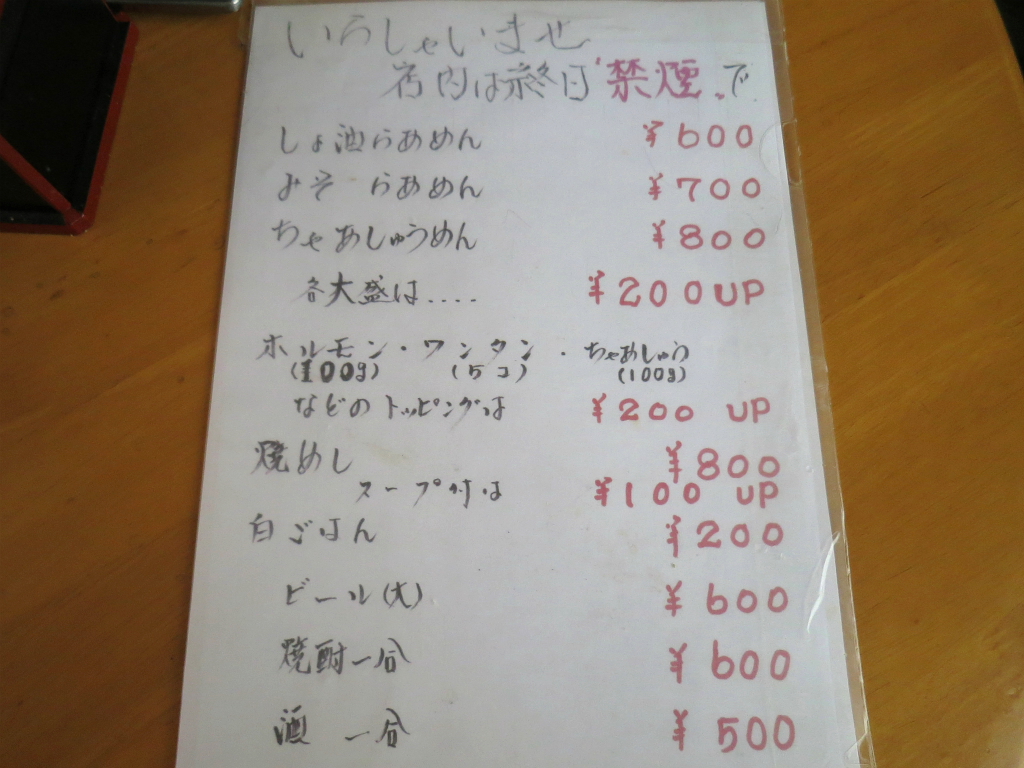 いらしゃいませ
店内は終日"禁煙"で
しょ酒らあめん ¥600
みそ らあめん ¥700
ちゃあしゅうめん ¥800
各大盛は.... ¥200UP
ホルモン・ワンタン・ちゃあしゅう
(100g) (5コ) (100g)
などのトッピングは ¥200 UP
焼めし ¥800
スープ付は ¥100 UP
白ごはん ¥200
ビール(大) ¥600
焼酎一合 ¥600
酒 一合 ¥500